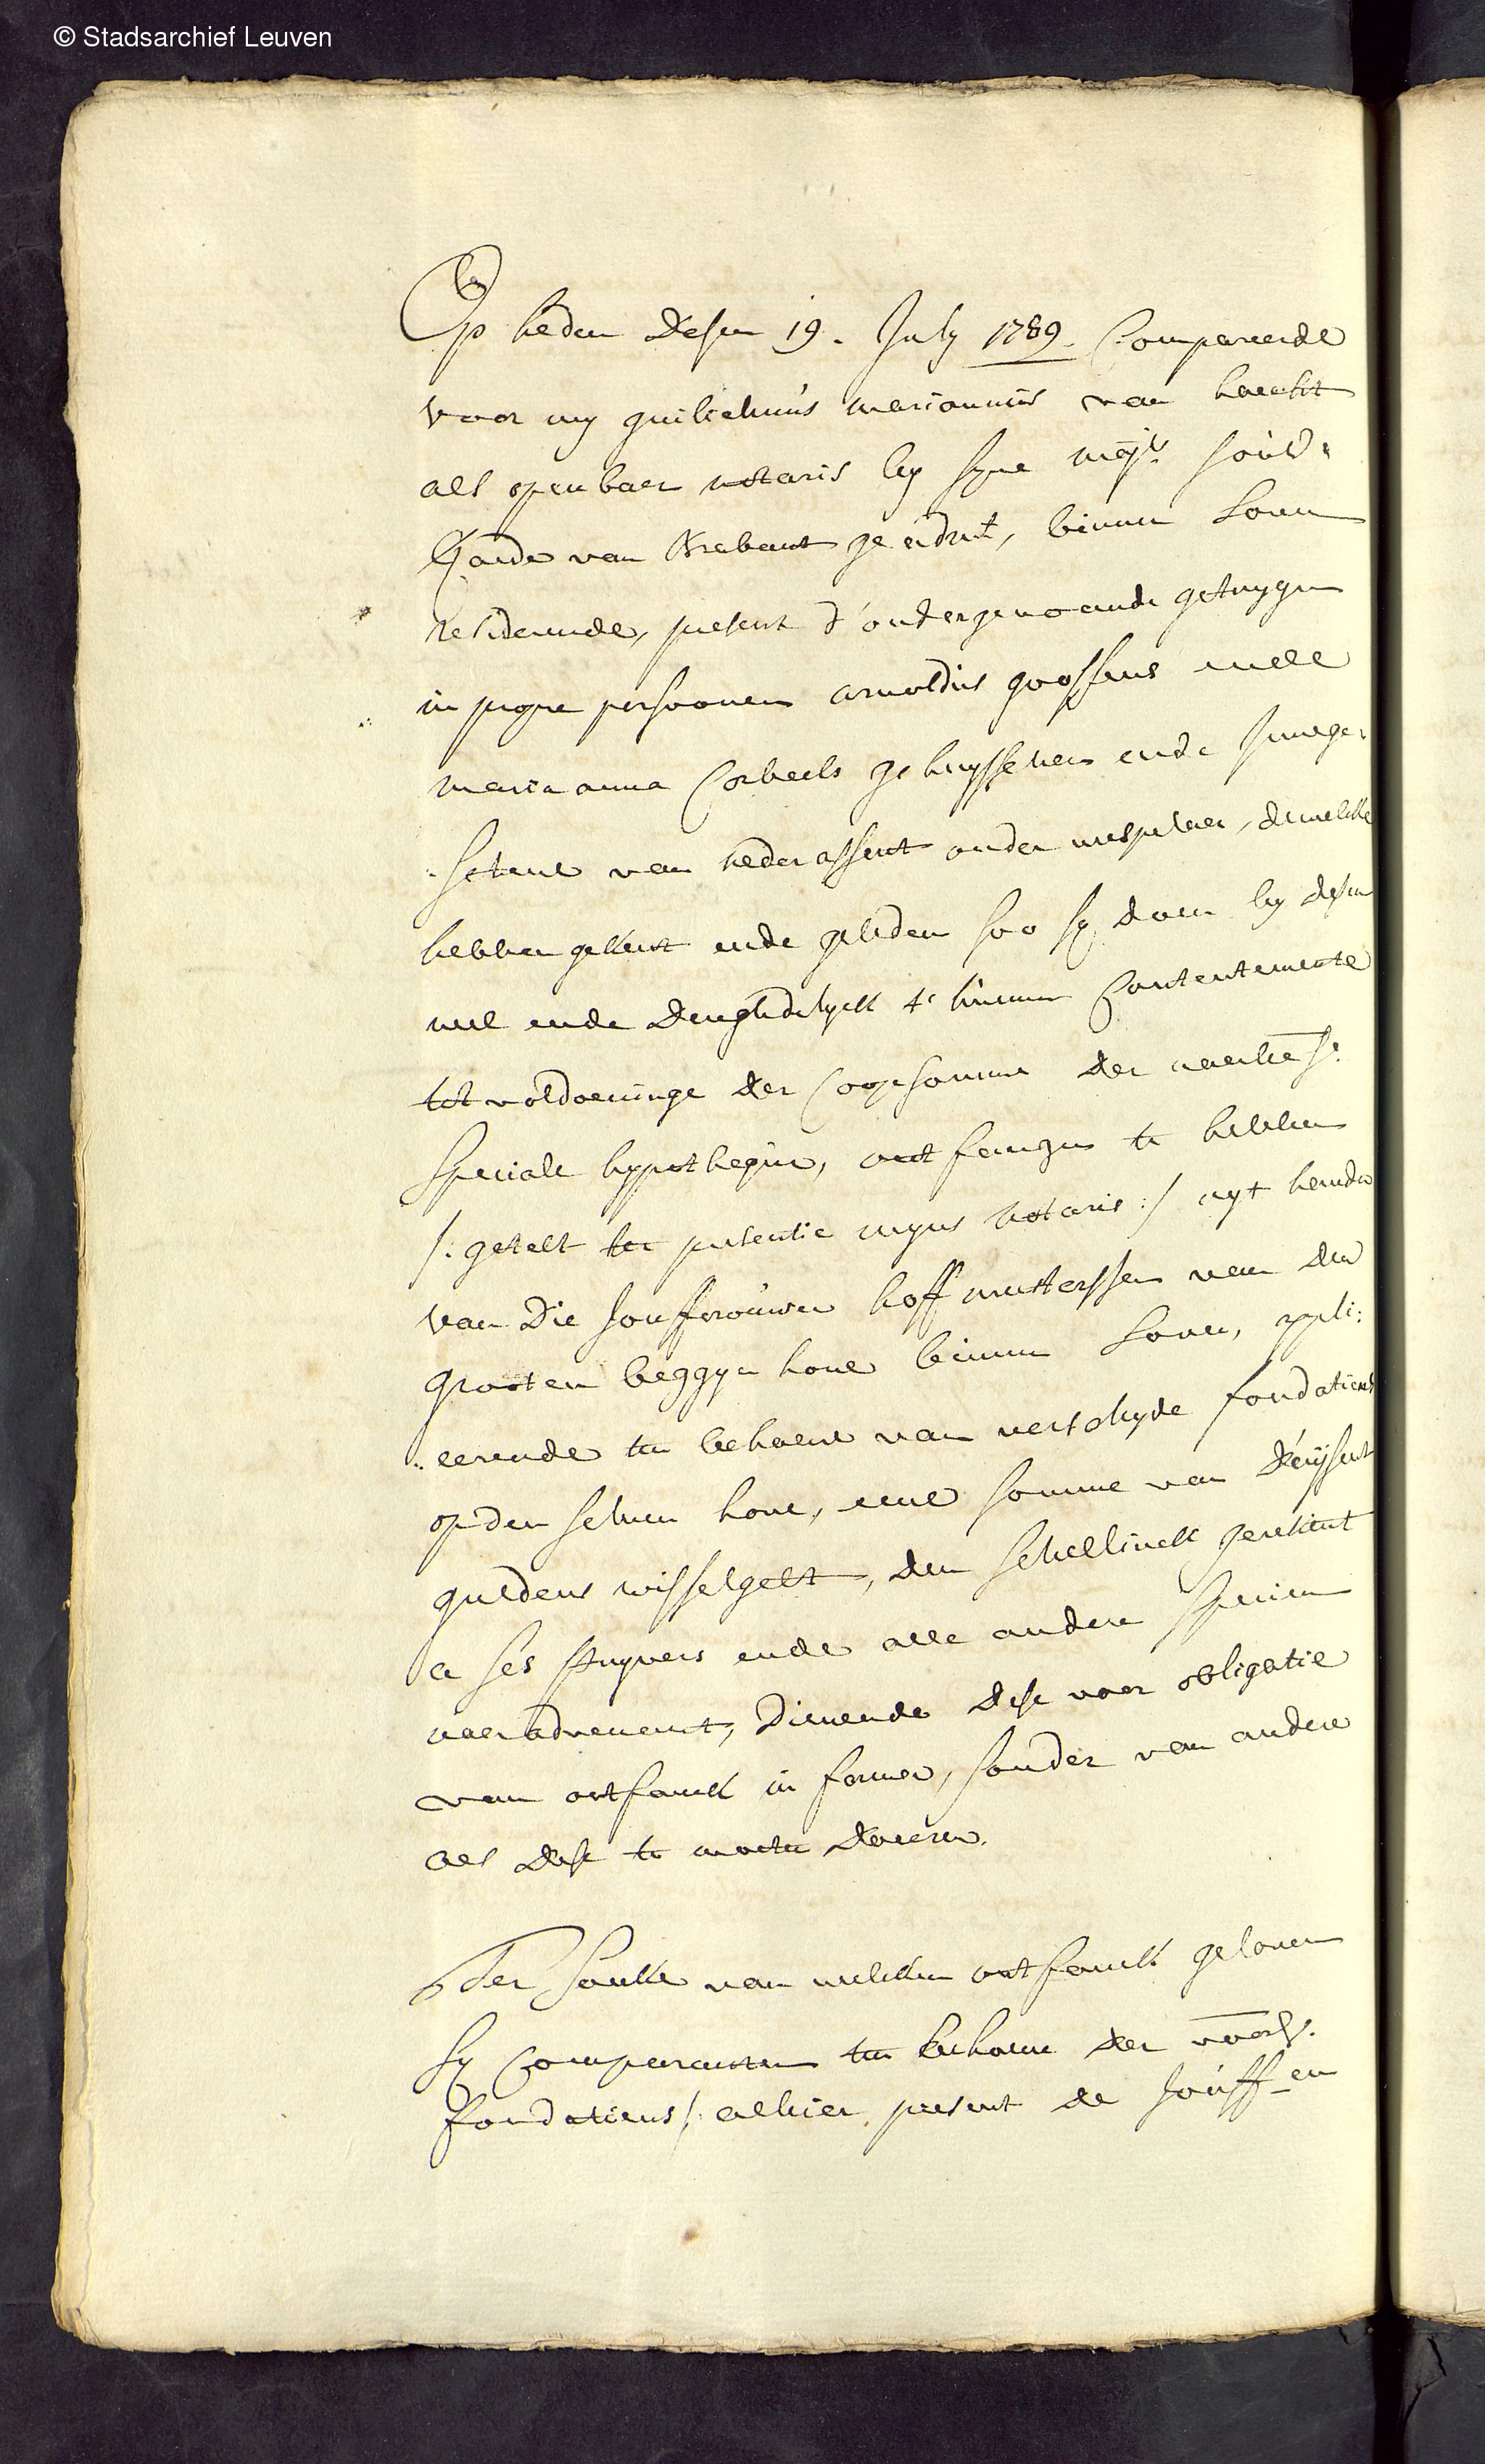 © Stadsarchief Leuven
Op heden desen 19. July 1789. Compareerde
voor my guilielmus mariannus van haecht
als openbaer notaris by syne maj.t souv:
Raede van Brabant geëdmt, binnen Loven
residerende, present d'ondergenoemde getuygen
in propre persoonen arnoldus goossens ende
maria anna Corbeels gehuysschen ende innege:
:setene van nederassent onder wespelaer, dewelcke
hebben gekent ende geleden soo sy doen by desen
wel ende deughdelyck t'hunnen Contentemente
tot voldoeninge der Coopsomme der naerbes:
speciale hypotheque, ontfangen te hebben
/: getelt ter presentie myns notaris :/ uyt handen
van die Jouffrouwen hoffmeesterssen van den
grooten beggynhove binnen Loven, appli:
:cerende ten behoeve van verschyde fondatien
op den selven hove, eene somme van duysent
guldens wisselgelt, den schellinck gerekent
a ses stuyvers ende alle andere specien
naer advenant, dienende dese voor obligatie
van ontfanck in forma, sonder van andere
als dese te moeten doceren.
Ter saecke van welcken ontfanck geloven
sy Comparanten ten behoeve der voors.
fondatiens /: alhier present de Jouff.en